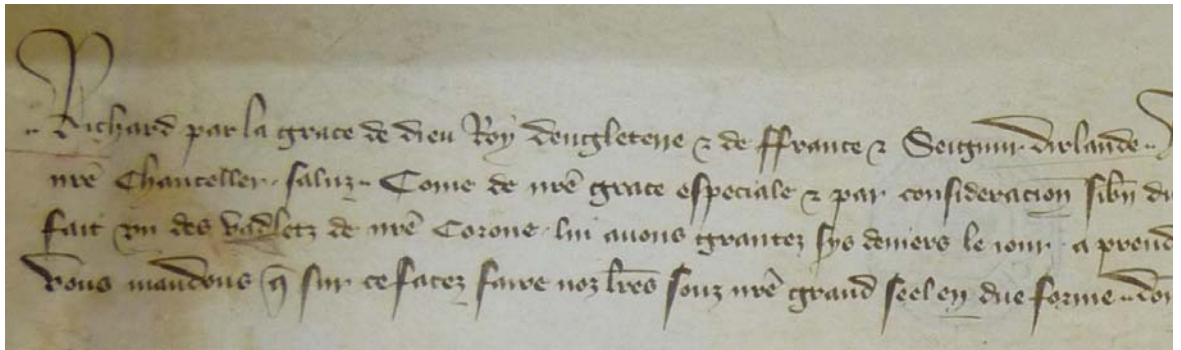 Richard par la grace de dieu Roy dengleterre & de ffrance & Seignur dirlande
nr̃e Chanceller saluz Come de nr̃e grace especiale & par consideracion sibn̄
fait un des vadletz de nr̃e Corone lui auons grantez sys deniers le iour a prend
vous mandons q̄ sur ce facez faire noz lr̃es souz nr̃e grand seel en due forme